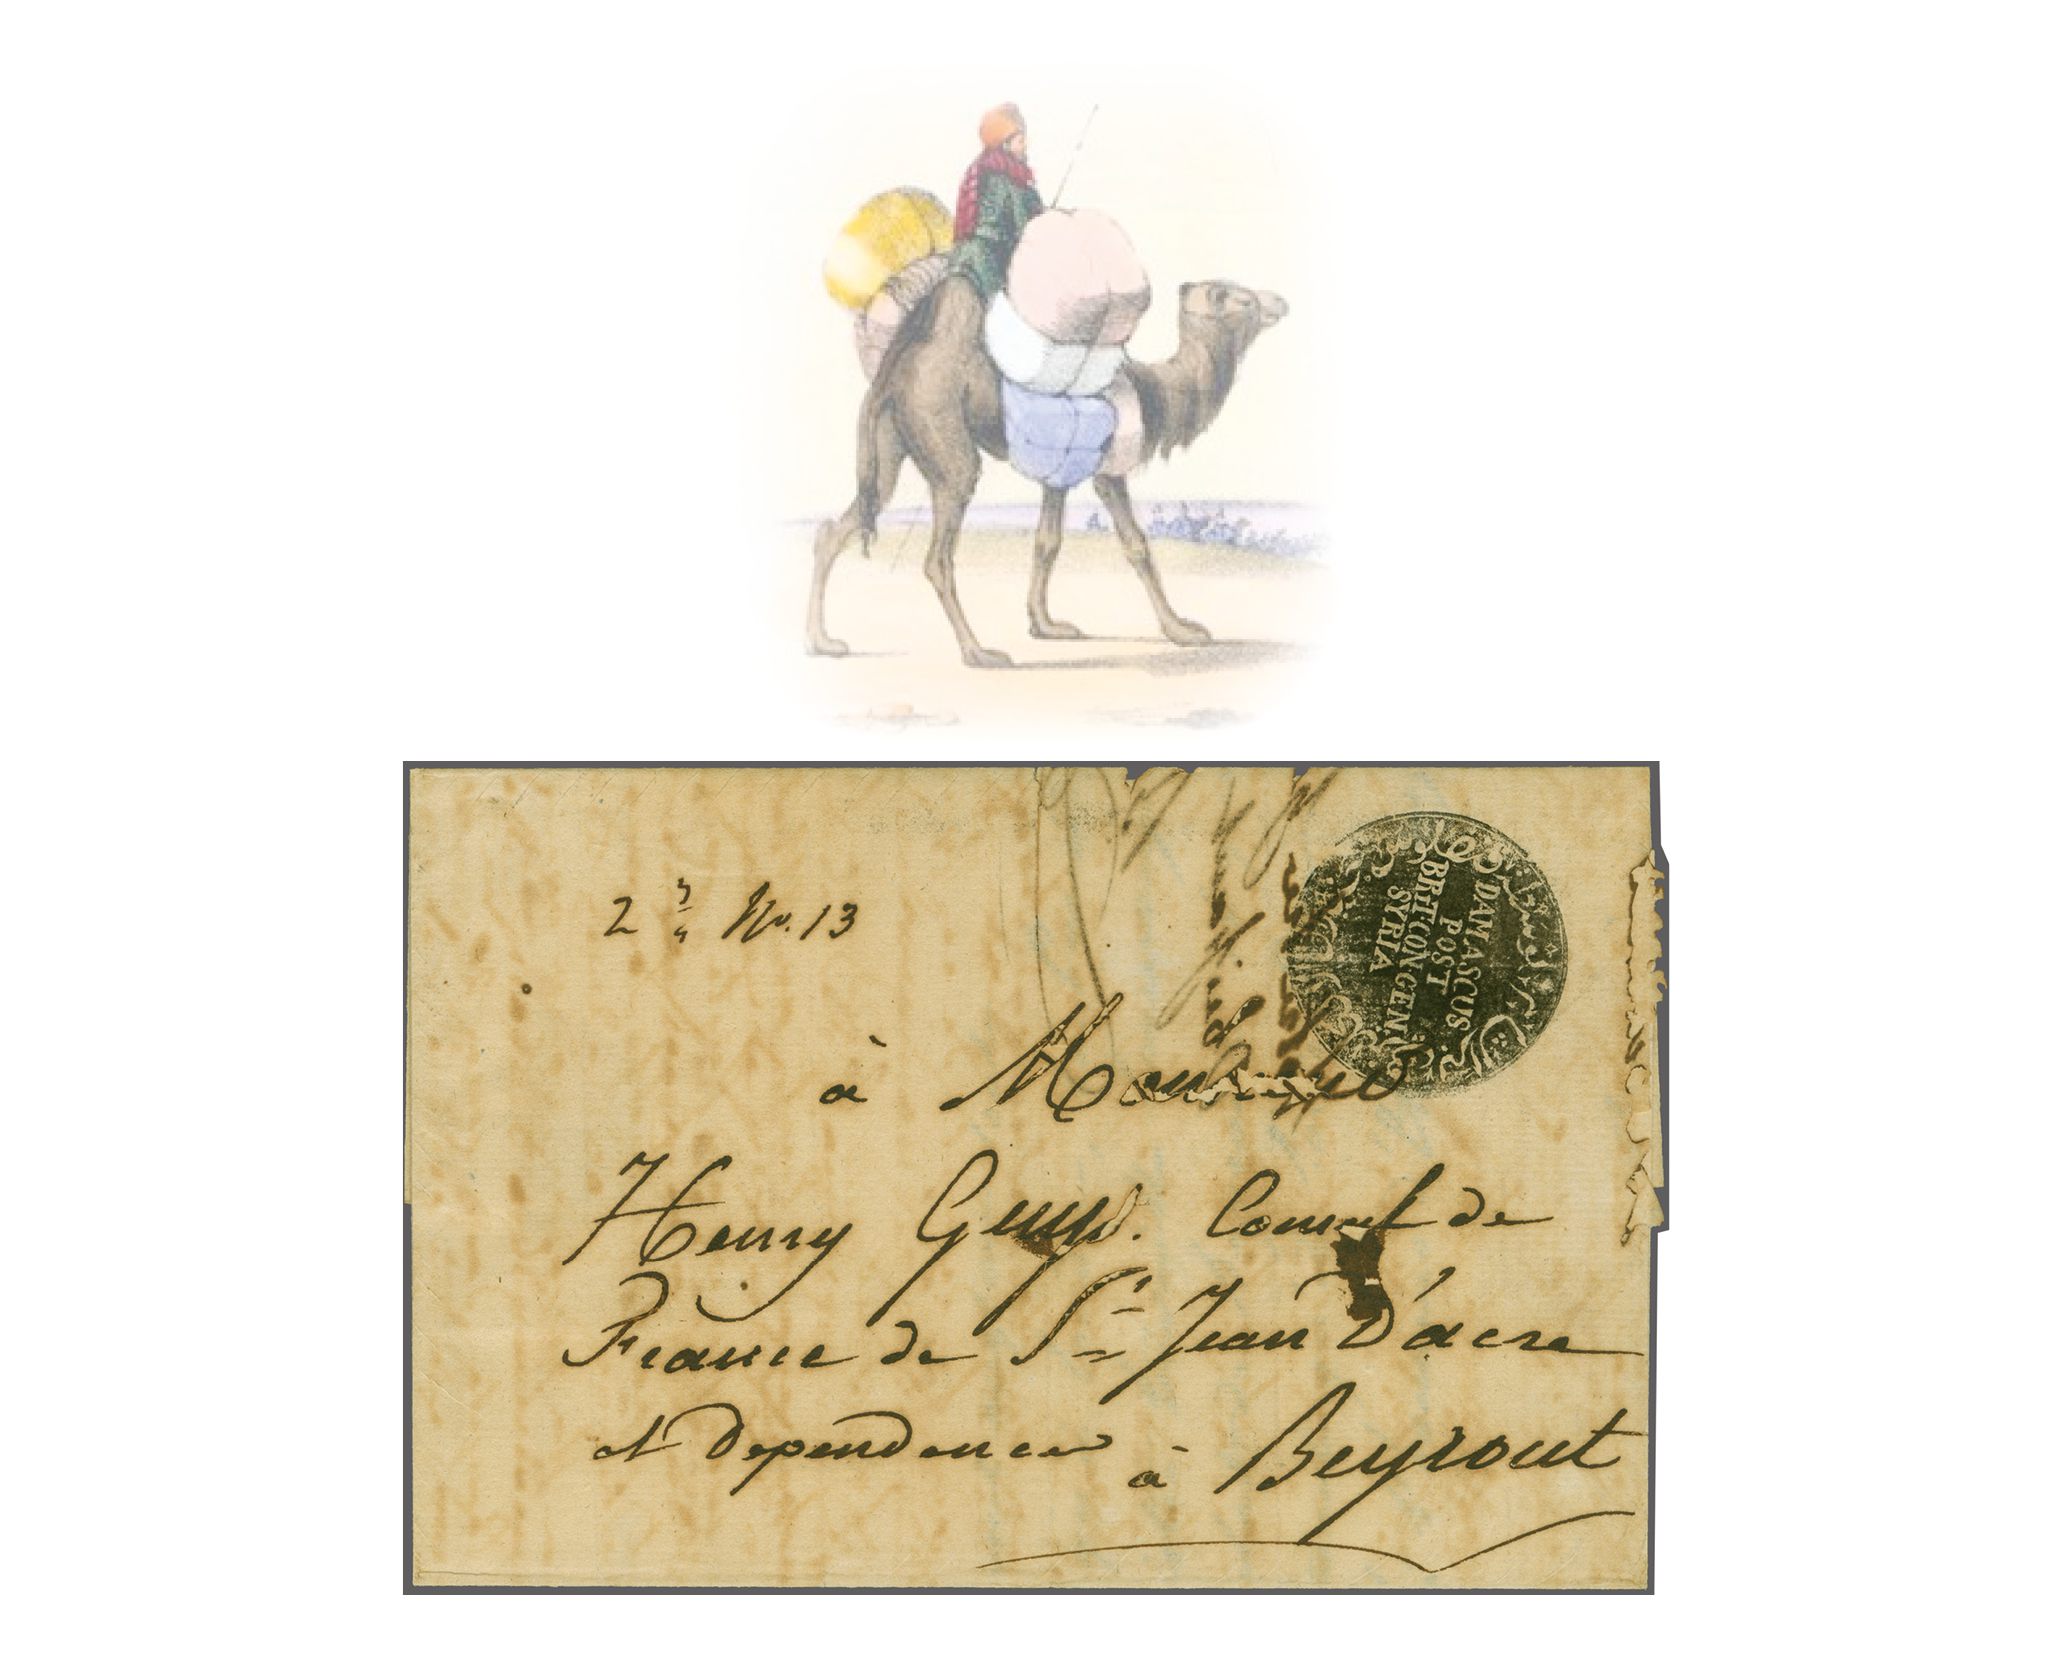 2 3/4 No. 13
DAMASCUS
POST
BRIT. CON. GEN.
SYRIA
à Monsieur
Henry Guys. Consul de
France de St. Jean D'acre
et Dependences à Beyrout